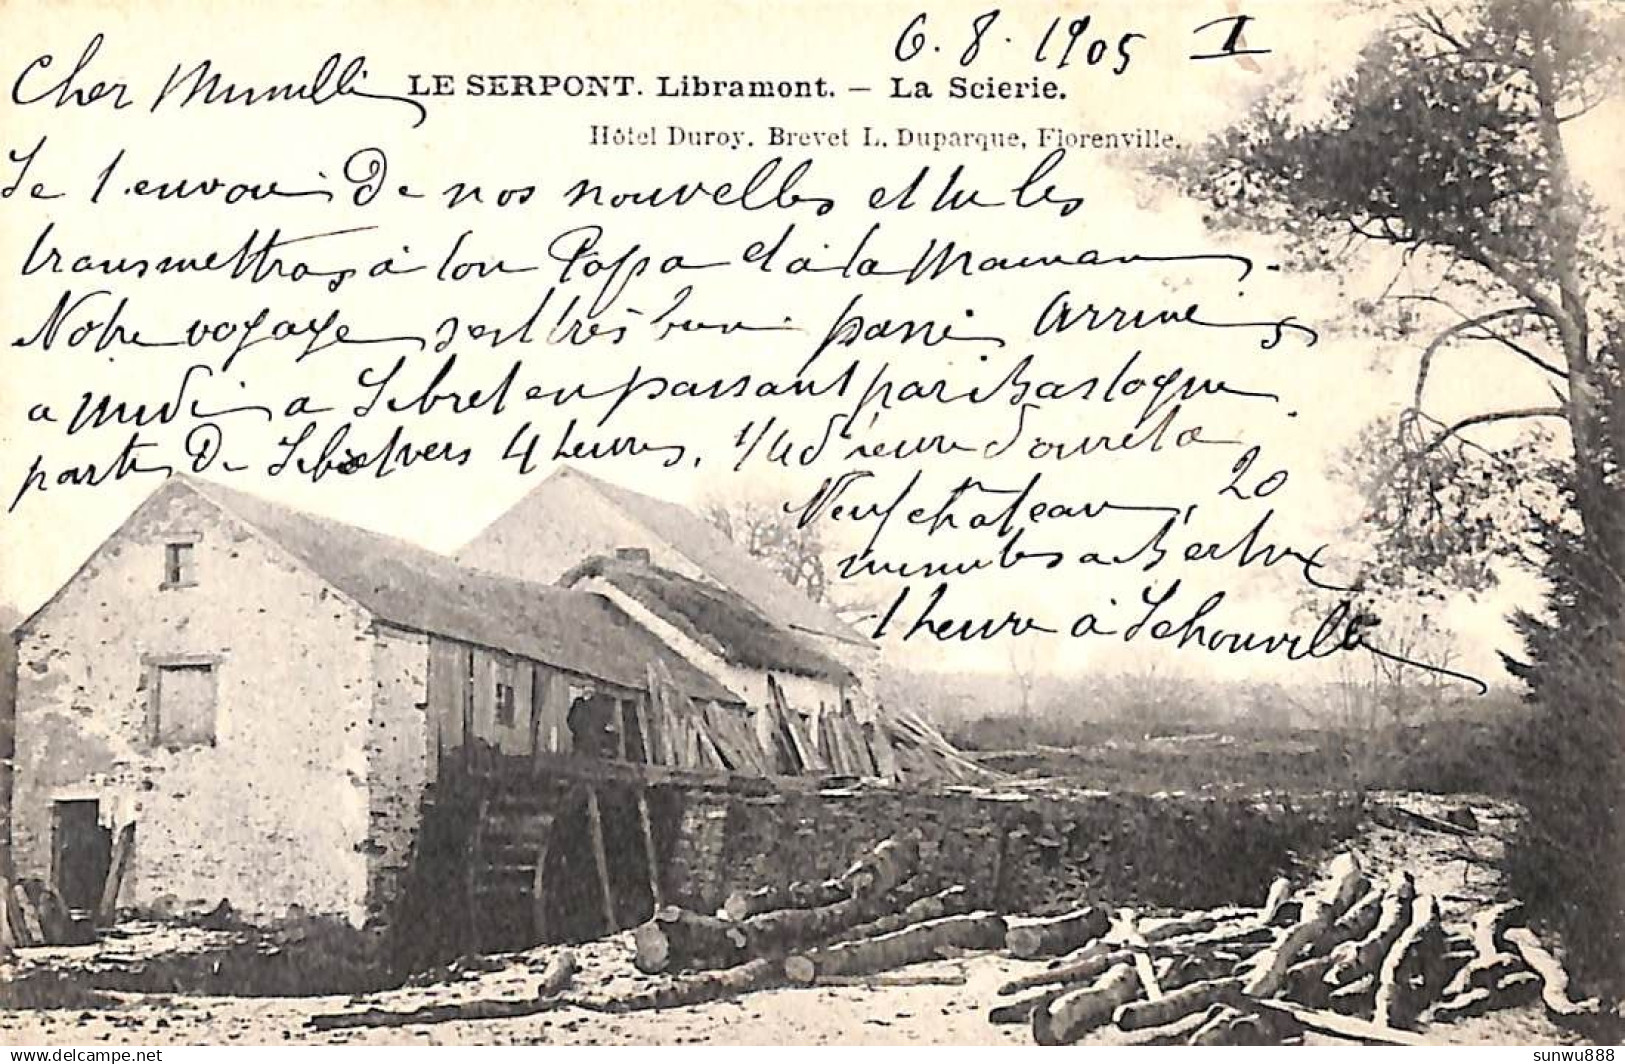 6.8.1905 I
Cher
LE SERPONT. Libramont. – La Scierie.
Hôtel Duroy. Brevet L. Duparque, Florenville.
Je t'envoie de nos nouvelles et tu les
transmettras à ton Papa et à ta Maman.
Notre voyage s'est très bien passé Arrivés
a midi a Libret en passant par Bastogne
partis de Libret vers 4 heures, 1/4 d'heure d'arret a
Neufchateau, 20
minutes a Bertrix
1 heure à
sunwu888